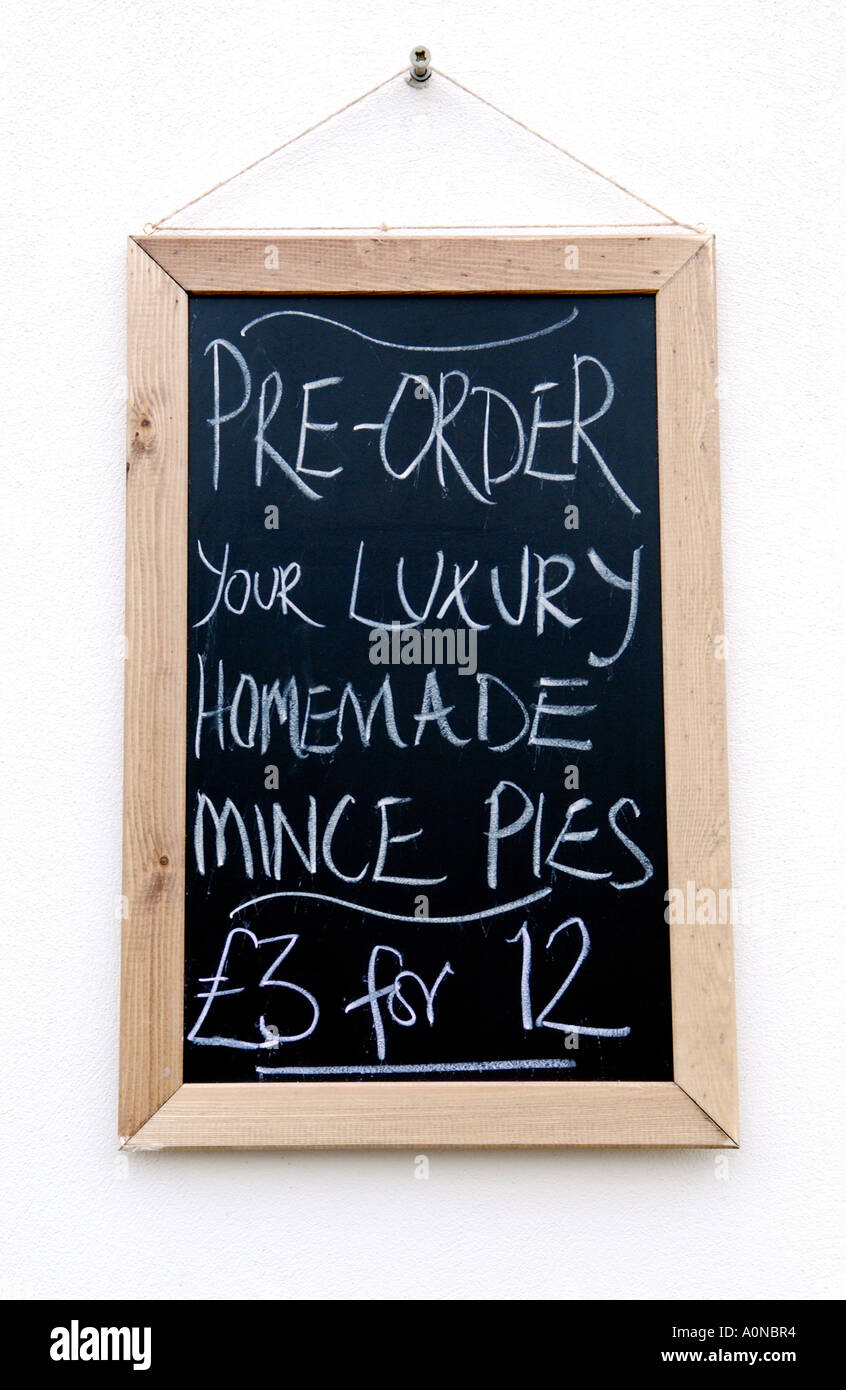 PRE-ORDER
YOUR LUXURY
HOMEMADE
MINCE PIES
£3 for 12
alamy
alamy
Image ID: A0NBR4
www.alamy.com